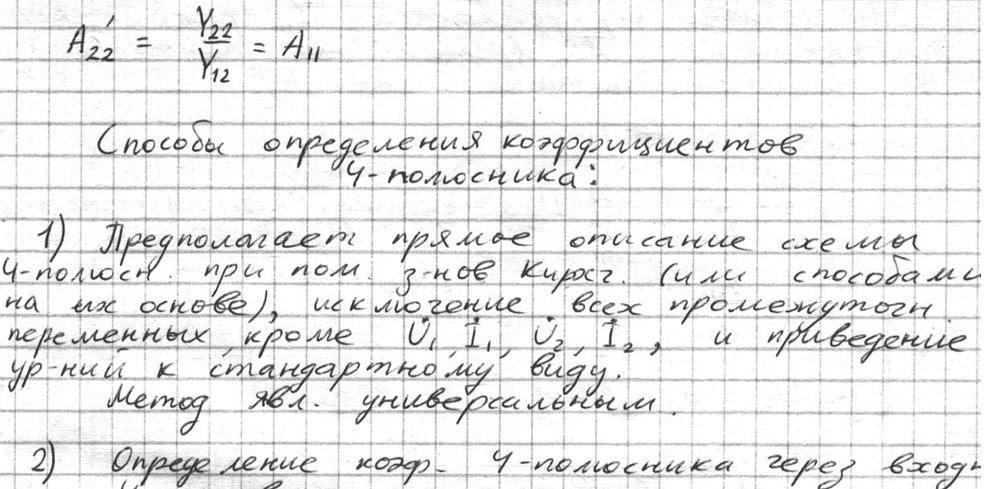 A₂₂' = Y₂₂/Y₁₂ = A₁₁
Способы определения коэффициентов
4-полюсника:
1) Предполагает прямое описание схемы
4-полюсн. при пом. з-нов Кирхг. (или способами
на их основе), исключение всех промежуточн.
переменных, кроме U̇₁, İ₁, U̇₂, İ₂, и приведение
ур-ний к стандартному виду.
Метод явл. универсальным.
2) Определение коэф. 4-полюсника через входн